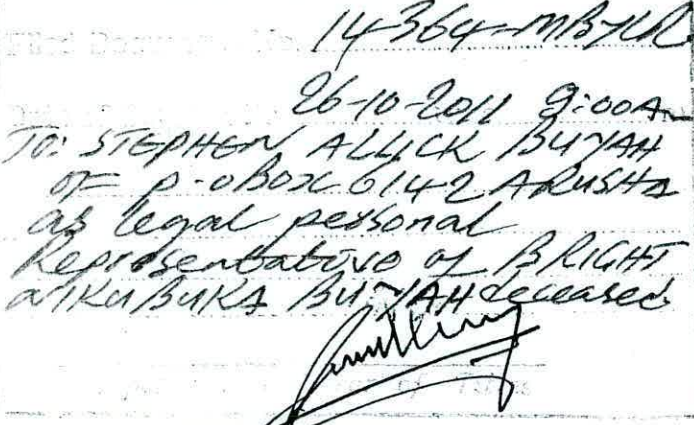 14364-MBYLR
26-10-2011 9:00A
TO: STEPHEN ALLICK BUYAH
OF P.O BOX 6142 ARUSHA
as legal personal
Representative of BRIGHT
BUYAH deceased